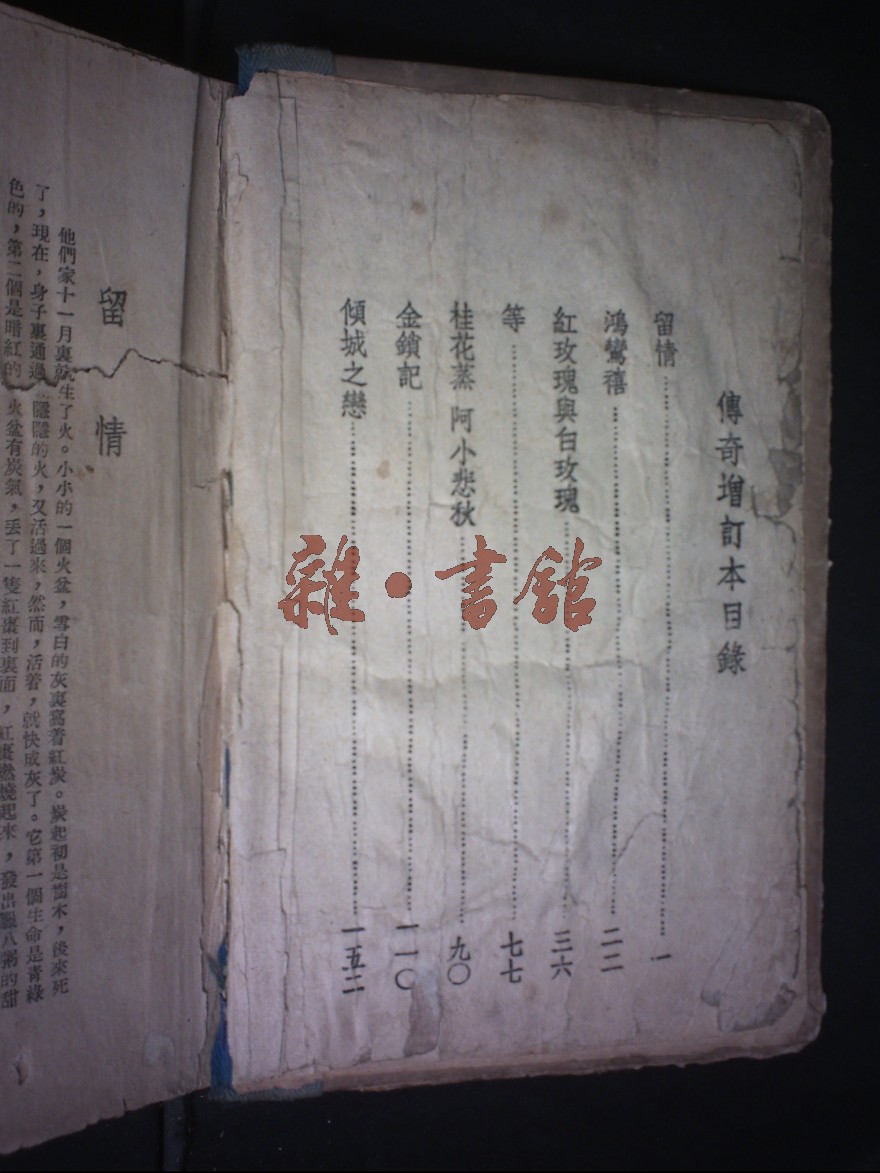 傳奇增訂本目錄
留情……一
鴻鸞禧……二二
紅玫瑰與白玫瑰……三六
等……七七
桂花蒸 阿小悲秋……九〇
金鎖記……一一〇
傾城之戀……一五二
雜·書館
留情
他們家十一月裏就生了火。小小的一個火盆,雪白的灰裏窩着紅炭。炭起初是樹木,後來死
了,現在,身子裏通過紅隱隱的火,又活過來,然而,活着,就快成灰了。它第一個生命是青綠
色的,第二個是暗紅的。火盆有炭氣,丢了一隻紅棗到裏面,紅棗燃燒起來,發出臘八粥的甜